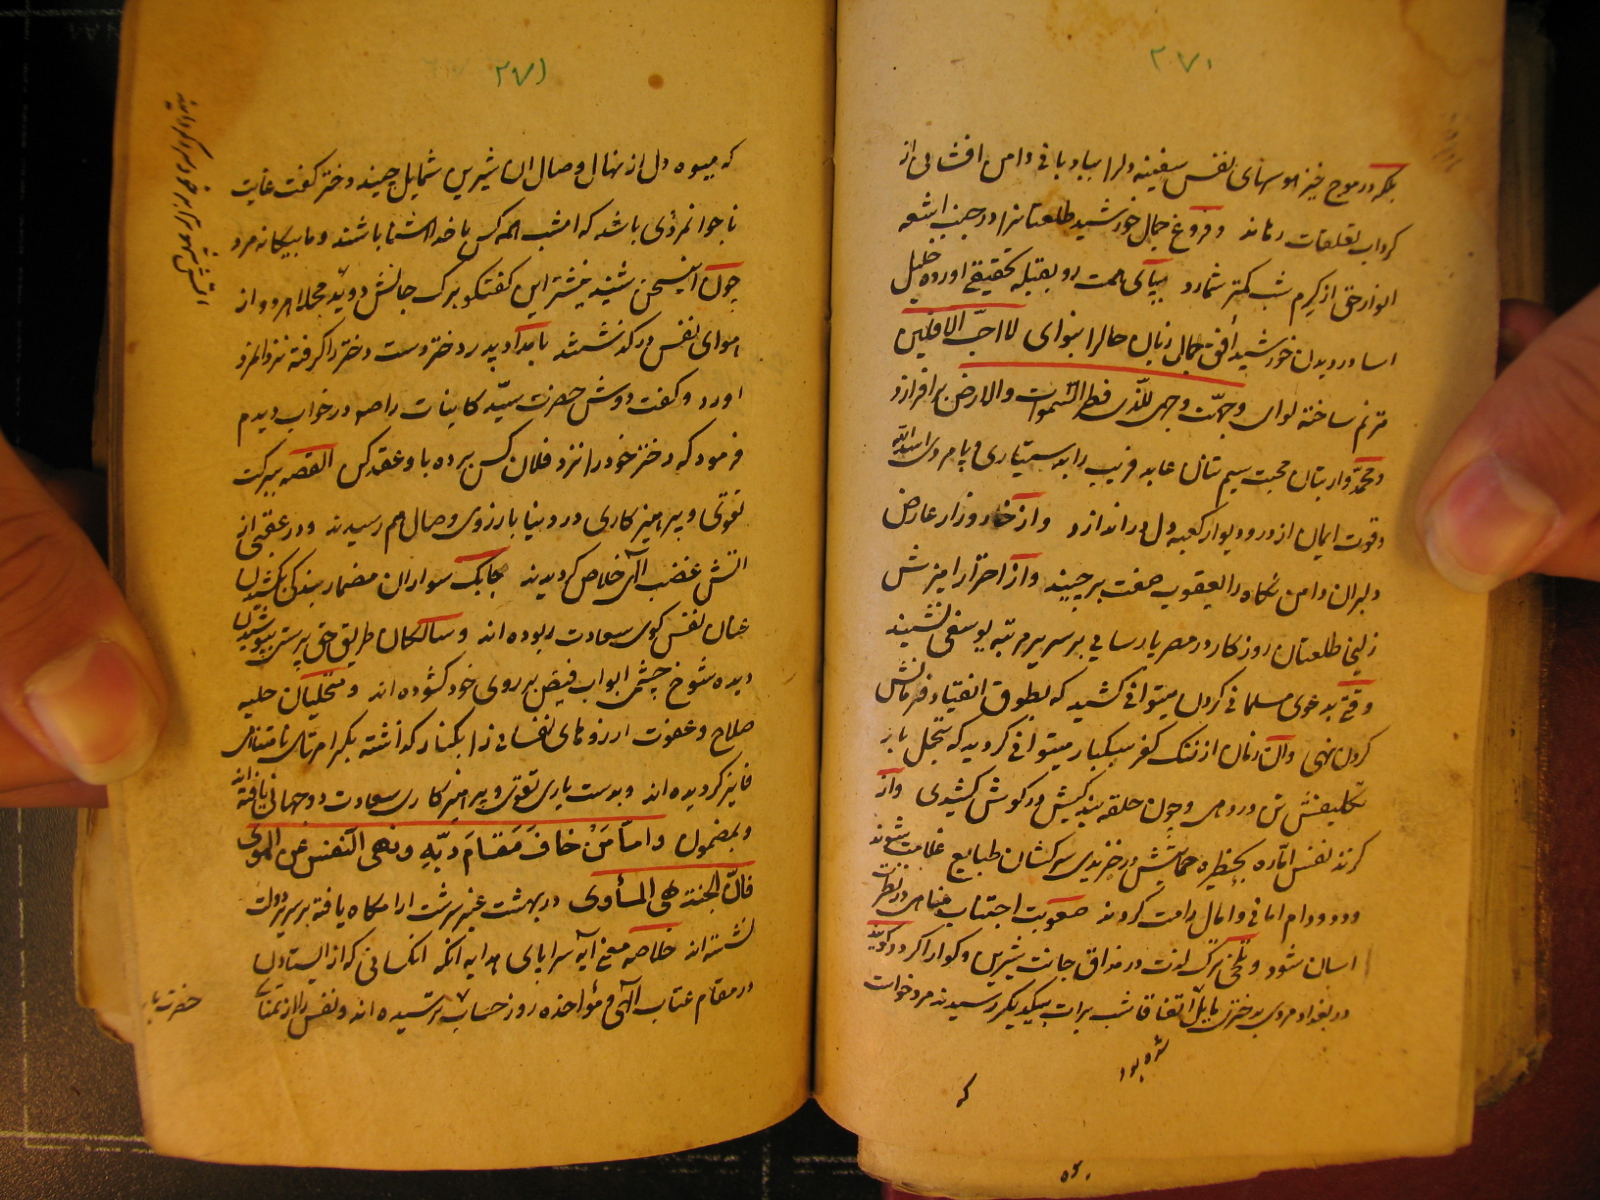 ۲۷۰
بلکه در موج خیز هوسهای نفس سفینه دلرا بباد بانی دامن افشانی از
کرداب تعلقات رهاند و فروغ جمال خورشید طلعتانرا در جنب اشعه
انوار حق از کرم شب کمتر شمارد بپای همت رو بقبله تحقیق اورده خلیل
اسا در دیدن خورشید افق جمال زنان حالرا بنوای لا احب الافلین
مترنم ساخته لوای وجهت وجهی للذی فطر السموات والارض برافرازد
و محمدوار بتان محبت سیم تنان عابد فریب را بدستیاری و پامردی اسدالله
و قوت ایمان از در و دیوار کعبه دل براندازد و از خار زار عارض
دلبران دامن نکاه را یعقوب صفت برچیند و از احتراز امیزش
زلیخا طلعتان روزکار در مصر پارسایی بر سریر مرتبه یوسفی نشیند
وقتی بدعوی مسلمانی کردن میتوانی کشید که بطوق انقیاد فرمانش
کردن نهی و آن زمان از ننک کفر سبکبار میتوانی کردید که تحمل بار
تکلیفش تن در دهی و چون حلقه بندکیش در کوش کشیدی و از
کزند نفس اماره بحظیره حمایتش در خزیدی سرکشان طبایع غلامت شوند
و دد و دام امانی و امال رامت کردند صعوبت اجتناب مناهی در نظرت
اسان شود و تلخی ترک لذت در مذاق جانت شیرین و کوارا کردد کویند
در بغداد مردی بدختری مایل اتفاقا شب برات بیکدیکر رسیدند مرد خواست
شده بود
که
۲۷۱
که میوه دل از نهال وصال ان شیرین شمایل چیند دختر کفت غایت
ناجوانمردی باشد که امشب همه کس با خدا اشنا باشند و ما بیکانه مرد
چون این سخن شنید نیشتر این کفتکو برک جانش دوید مجملا هر دو از
هوای نفس درکذشتند بامداد پدر دختر دست دختر را کرفته نزد انمرد
اورد و کفت دوش حضرت سید کاینات را صم در خواب دیدم
فرمود که دختر خود را نزد فلان کس برده باو عقد کن القصه ببرکت
تقوی و پرهیزکاری در دنیا بارزوی وصال هم رسیدند و در عقبی از
اتش غضب الهی خلاص کردیدند چابک سواران مضمار بندکی بکشیدن
عنان نفس کوی سعادت ربوده اند و سالکان طریق حق پرستی بپوشیدن
دیده شوخ چشمی ابواب فیض بر روی خود کشوده اند و متحلیان حلیه
صلاح و عفت ارزوهای نفسانی را بکنار کذاشته بکرامتهای نامتناهی
فایز کردیده اند و بدست یاری تقوی و پرهیزکاری سعادت دوجهانی یافته اند
و بمضمون و اما من خاف مقام ربه و نهی النفس عن الهوی
فان الجنة هی الماوی در بهشت عنبر سرشت ارامکاه یافته بر سریر دولت
نشسته اند خلاصه معنی آیه سراپای هدایه انکه انکسانی که از ایستادن
در مقام عتاب الهی و مؤاخذه روز حساب ترسیده اند و نفس را از تمنای
حضرت با